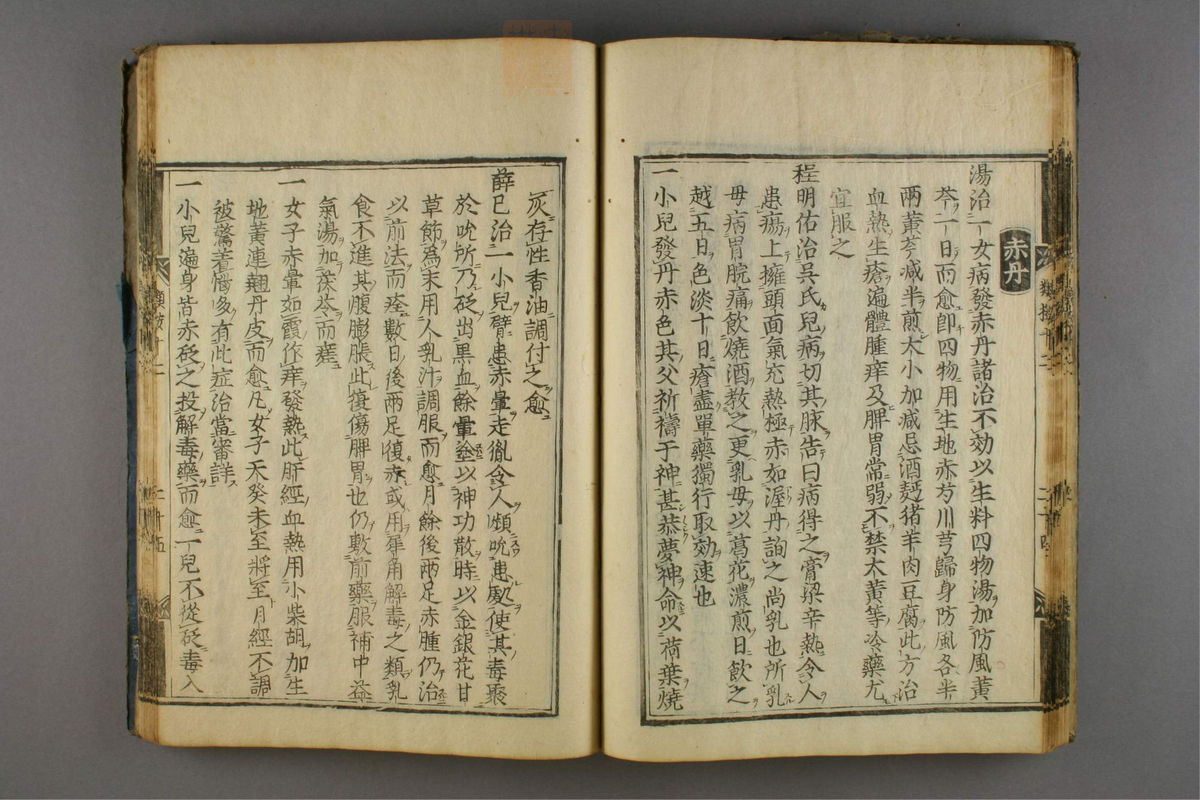 赤丹
湯治一女病發赤丹諸治不効以生料四物湯加防風黃
芩一日而愈即四物用生地赤芍川芎歸身防風各半
兩黃芩减半煎大小加减忌酒麪猪羊肉豆腐此方治
血熱生瘡遍體腫痒及脾胃常弱不禁大黃等冷藥尤
宜服之
程明佑治吳氏兒病切其脉告曰病得之膏梁辛熱令人
患瘍上擁頭面氣充熱極赤如渥丹詢之尚乳也所乳
毋病胃脘痛飲燒酒教之更乳毋以葛花濃煎日飲之
越五日色淡十日瘡盡單藥獨行取効速也
一小兒發丹赤色其父祈禱于神甚恭夢神命以荷葉燒
灰存性香油調付之愈
薛已治一小兒臂患赤暈走彻令人頻吮患處使其毒聚
於吮所乃砭出黑血餘暈塗以神功散時以金銀花甘
草節爲末用人乳汁調服而愈月餘後兩足赤腫仍治
以前法而痊數日後兩足復赤或用犀角解毒之類乳
食不進其腹膨脹此復傷脾胃也仍敷前藥服補中益
氣湯加茯苓而瘥
一女子赤暈如霞作痒發熱此肝經血熱用小柴胡加生
地黃連翹丹皮而愈凡女子天癸未至將至月經不調
被驚着惱多有此症治當審詳
一小兒遍身皆赤砭之投解毒藥而愈一兒不從砭毒入
類案十二
二十四
類案十二
二十五